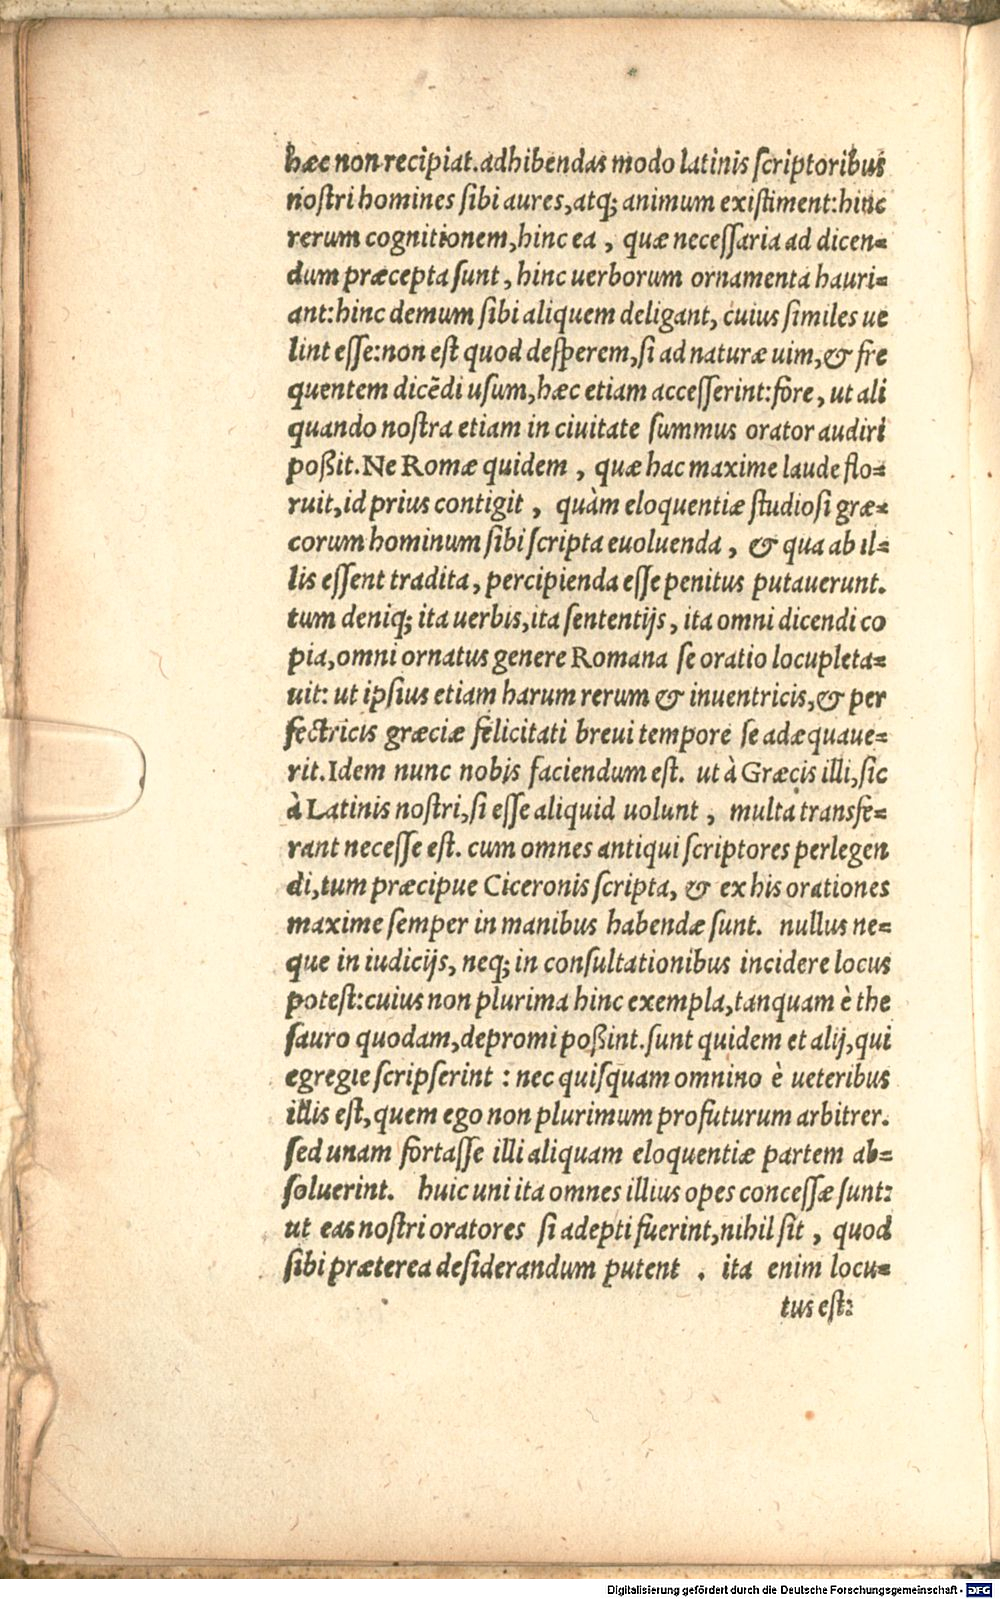 hæc non recipiat. adhibendas modo latinis scriptoribus
nostri homines sibi aures, atq; animum existiment: hinc
rerum cognitionem, hinc ea , quæ necessaria ad dicen=
dum præcepta sunt , hinc uerborum ornamenta hauri=
ant: hinc demum sibi aliquem deligant, cuius similes ue
lint esse: non est quod desperem, si ad naturæ uim, & fre
quentem dicēdi usum, hæc etiam accesserint: fore , ut ali
quando nostra etiam in ciuitate summus orator audiri
poßit. Ne Romæ quidem , quæ hac maxime laude flo=
ruit, id prius contigit , quàm eloquentiæ studiosi græ=
corum hominum sibi scripta euoluenda , & qua ab il=
lis essent tradita , percipienda esse penitus putauerunt.
tum deniq; ita uerbis, ita sententijs , ita omni dicendi co
pia, omni ornatus genere Romana se oratio locupleta=
uit: ut ipsius etiam harum rerum & inuentricis, & per
fectricis græciæ felicitati breui tempore se adæquaue=
rit. Idem nunc nobis faciendum est. ut à Græcis illi, sic
à Latinis nostri, si esse aliquid uolunt , multa transfe=
rant necesse est. cum omnes antiqui scriptores perlegen
di, tum præcipue Ciceronis scripta, & ex his orationes
maxime semper in manibus habendæ sunt. nullus ne=
que in iudicijs, neq; in consultationibus incidere locus
potest: cuius non plurima hinc exempla, tanquam è the
sauro quodam, depromi poßint. sunt quidem et alij, qui
egregie scripserint : nec quisquam omnino è ueteribus
illis est, quem ego non plurimum profuturum arbitrer.
sed unam fortasse illi aliquam eloquentiæ partem ab=
soluerint. huic uni ita omnes illius opes concessæ sunt:
ut eas nostri oratores si adepti fuerint, nihil sit , quod
sibi præterea desiderandum putent . ita enim locu=
tus est:
Digitalisierung gefördert durch die Deutsche Forschungsgemeinschaft - DFG